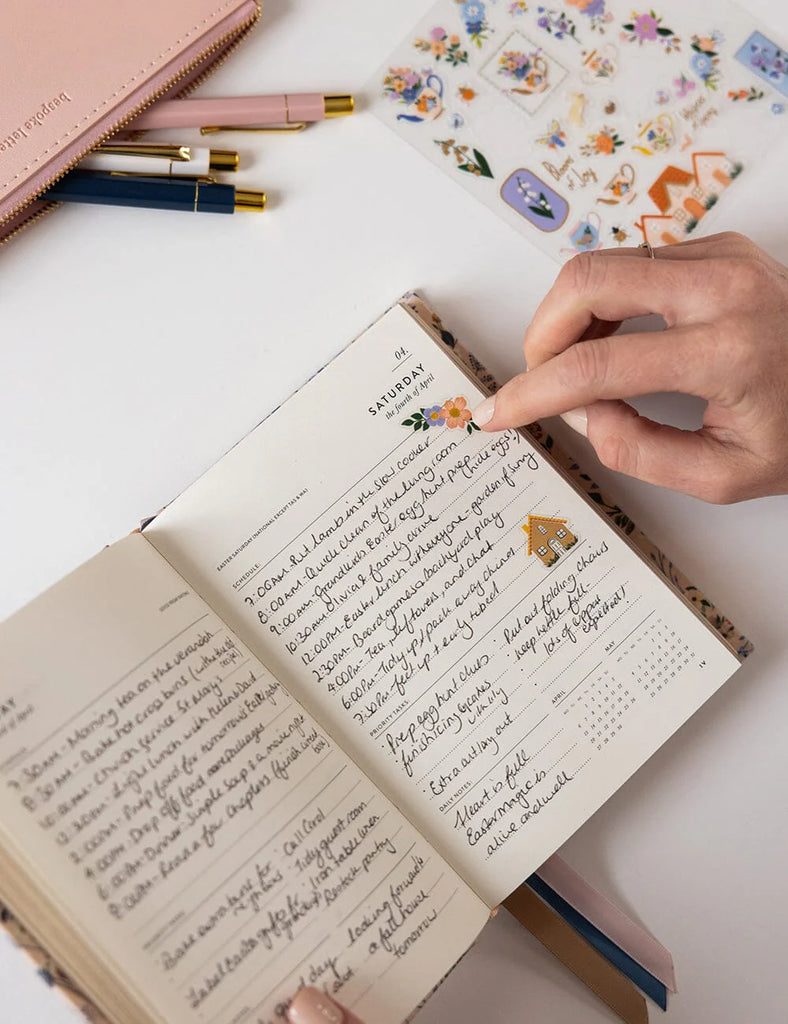 bespoke lette
Blooms of Joy
04.
SATURDAY
the fourth of April
EASTER SATURDAY (NATIONAL EXCEPT TAS & WA)
SCHEDULE:
7:00AM - Put lamb in the slow cooker
8:00AM - Quick clean of the living room
9:00AM - Grandkids Easter egg hunt prep (hide eggs!)
10:30AM - Olivia & family arrive
12:00PM - Easter lunch with everyone - garden if sunny
2:30PM - Board games & backyard play
4:00PM - Tea, leftovers, and chat
6:00PM - Tidy up / pack away chairs
7:30PM - feet up + early to bed
PRIORITY TASKS:
· Prep egg hunt clues
· Put out folding chairs
· finish icing cakes
· keep kettle full -
lots of
expected!
· Extra outlay out
DAILY NOTES:
Heart is full
Easter magic is
alive and well
APRIL
MAY
IV
DAY
of April
7:30AM - Morning tea on the verandah
8:30AM - Bake hot cross buns (with the
recipe)
10:00AM - Church service St Mary's
12:30PM - Light lunch with Helen & Dad
2:00PM - Prep food for tomorrow's Easter
4:00PM - Drop off food care packages
6:00PM - Dinner - Simple soup & a movie night
8:00PM - Read a few chapters (finish
book)
Bake extra buns for
· Call Carol
· Tidy guest room
Label Easter
· Iron table linen
· Restock pantry
day
looking forward to
a full house
tomorrow